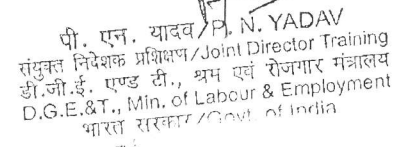 पी. एन. यादव/P. N. YADAV
संयुक्त निदेशक प्रशिक्षण/Joint Director Training
डी.जी.ई. एण्ड टी., श्रम एवं रोजगार मंत्रालय
D.G.E.&T., Min. of Labour & Employment
भारत सरकार/Govt. of India